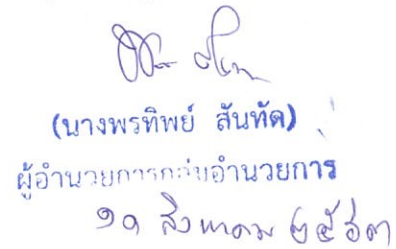 (นางพรทิพย์ สันทัด)
ผู้อำนวยการกลุ่มอำนวยการ
๑๑ สิงหาคม ๒๕๖๓